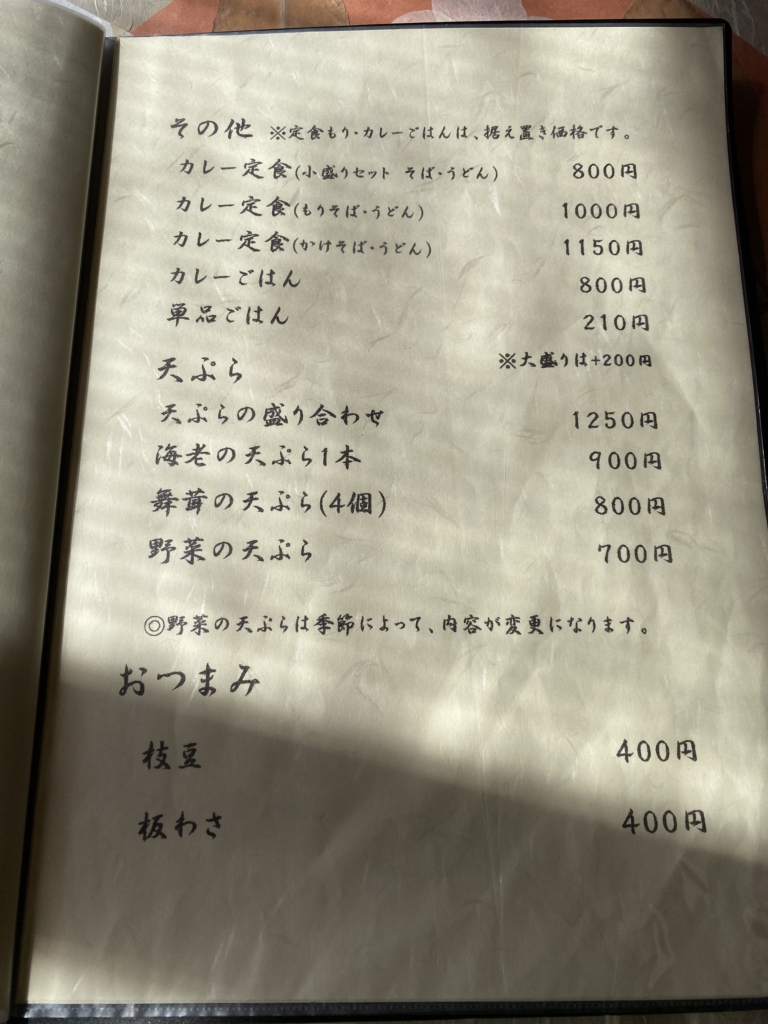 その他 ※定食もり・カレーごはんは、据え置き価格です。
カレー定食(小盛りセット そば・うどん) 800円
カレー定食(もりそば・うどん) 1000円
カレー定食(かけそば・うどん) 1150円
カレーごはん 800円
単品ごはん 210円
天ぷら ※大盛りは+200円
天ぷらの盛り合わせ 1250円
海老の天ぷら1本 900円
舞茸の天ぷら(4個) 800円
野菜の天ぷら 700円
◎野菜の天ぷらは季節によって、内容が変更になります。
おつまみ
枝豆 400円
板わさ 400円